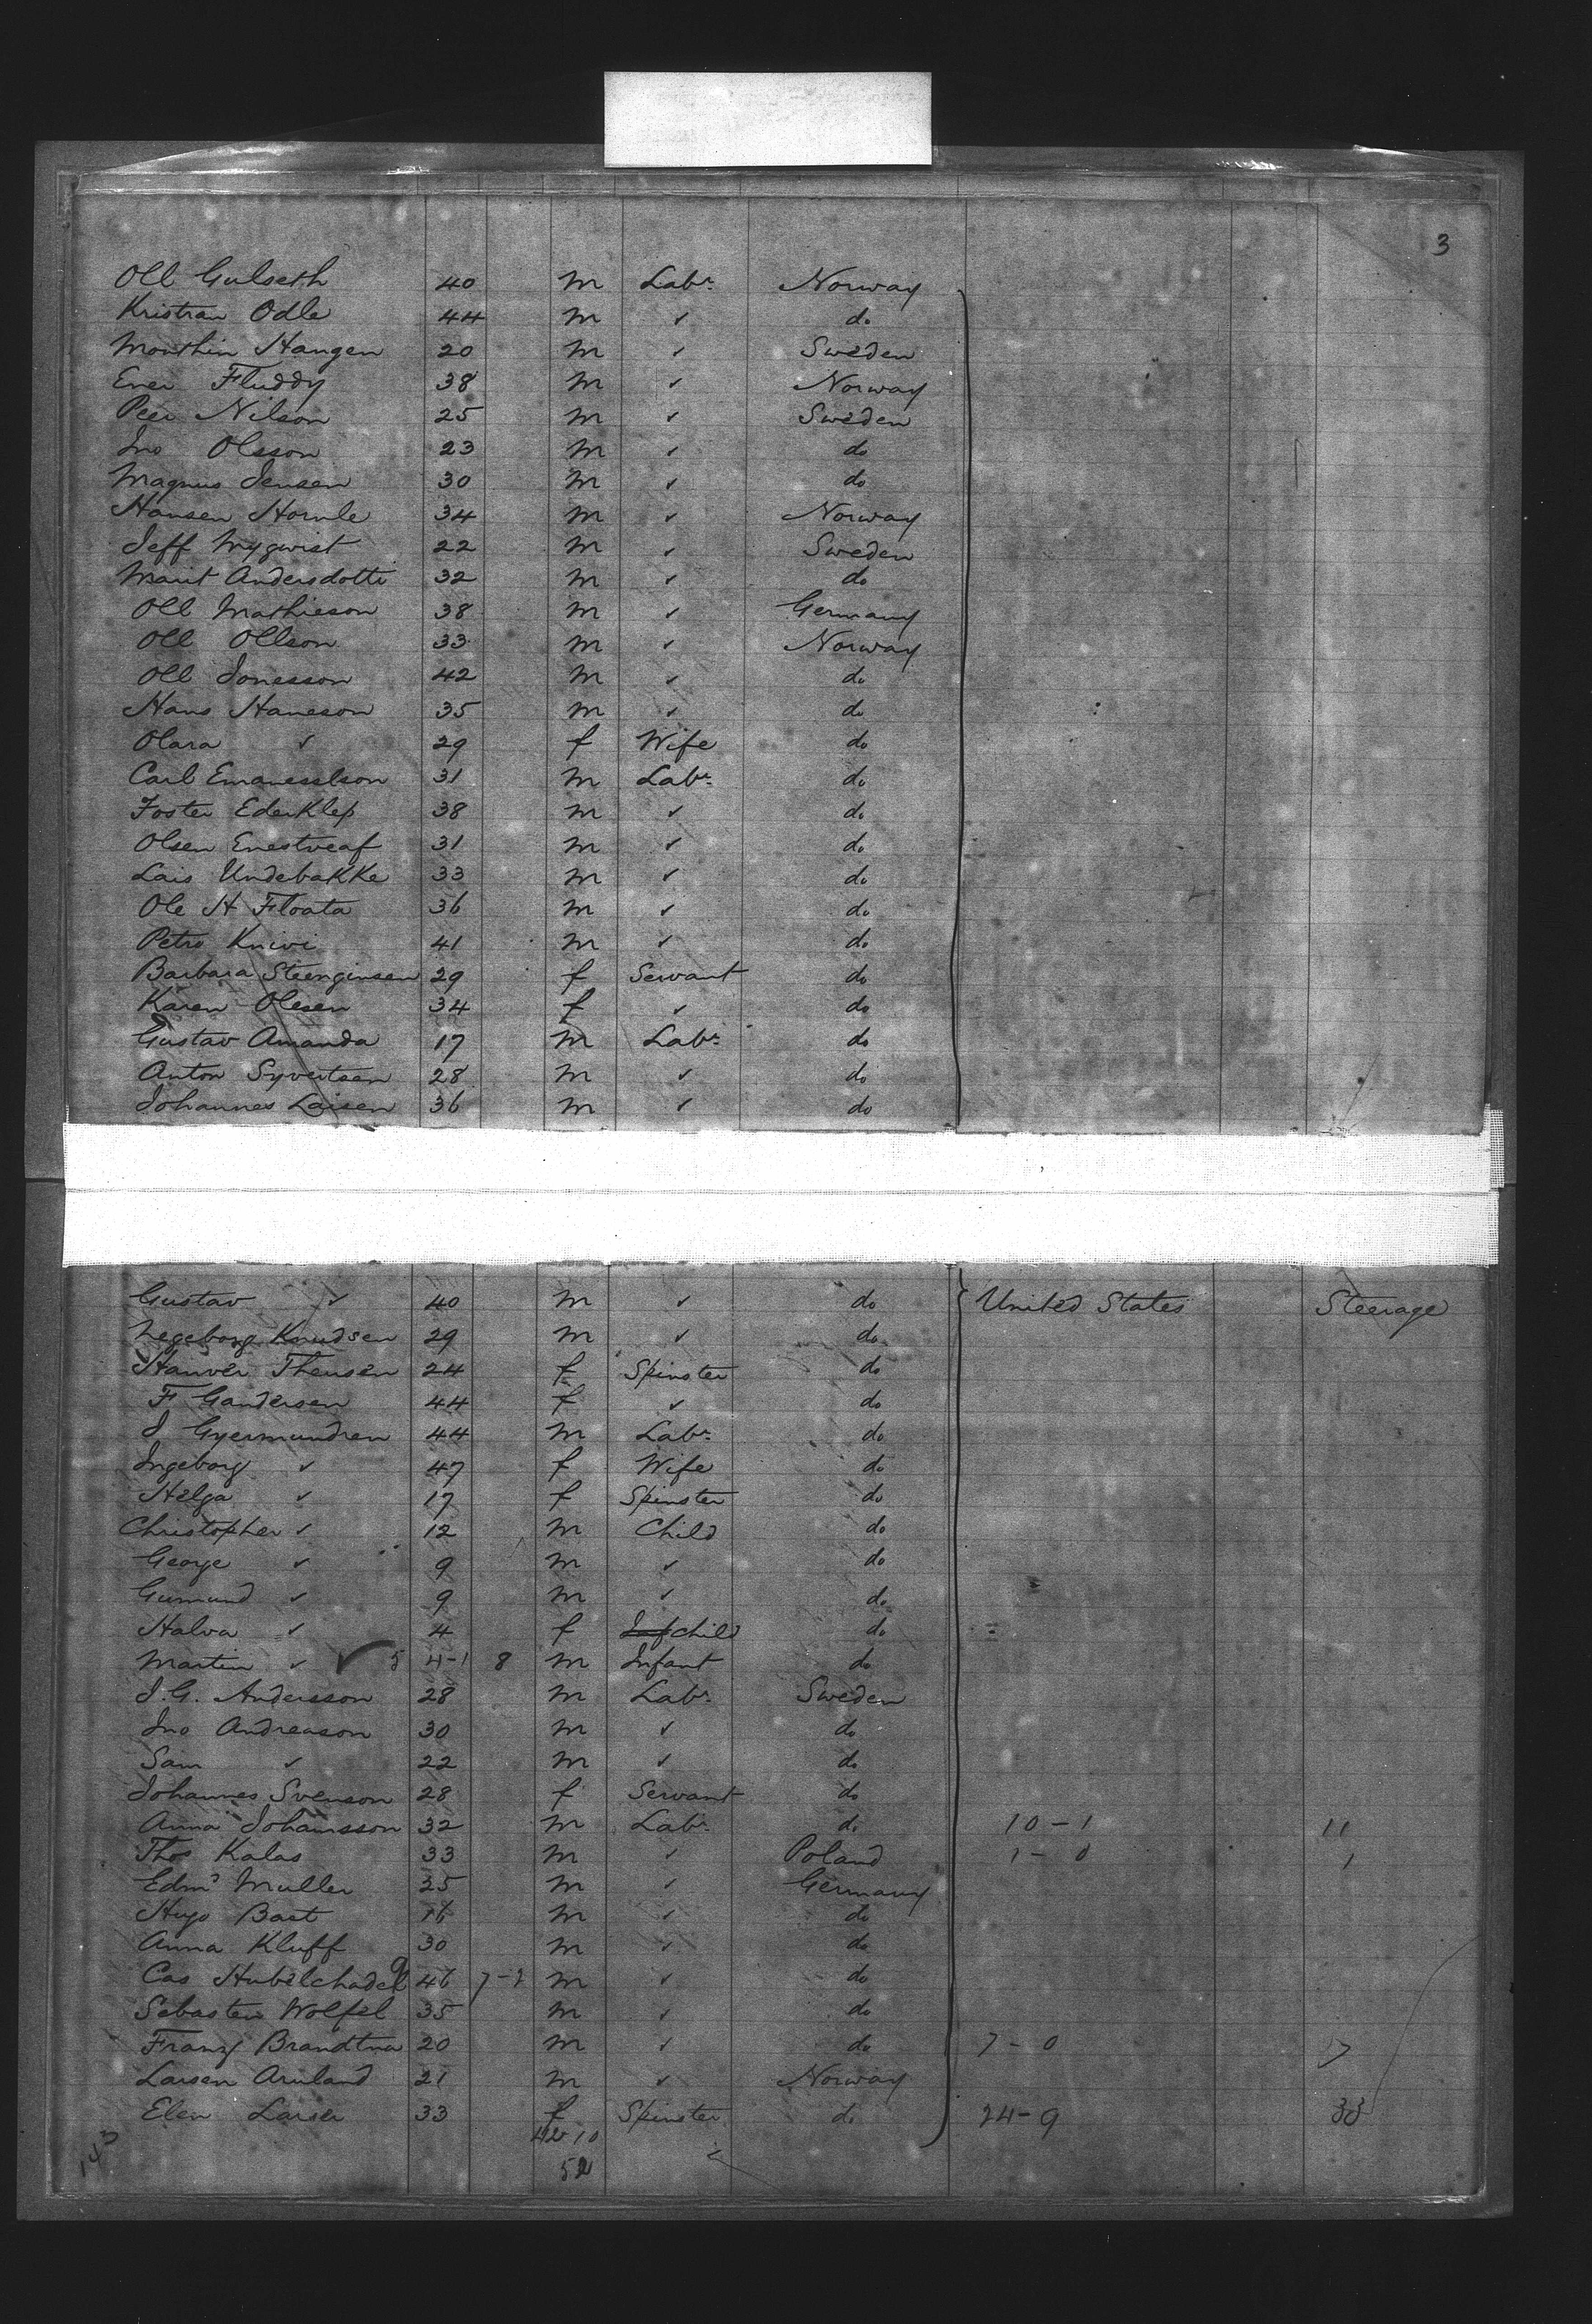 3
Oll Gulseth 40 M Labr. Norway
Kristran Odle 44 M ✓ do
Monthin Haugen 20 M ✓ Sweden
Ener Fluddy 38 M ✓ Norway
Peer Nilson 25 M ✓ Sweden
Jno Olsson 23 M ✓ do
Magnus Jensen 30 M ✓ do
Hansen Hornle 34 M ✓ Norway
Jeff Nyqwist 22 M ✓ Sweden
Marit Andersdotti 32 M ✓ do
Oll Mathieson 38 M ✓ Germany
Oll Ollson 33 M ✓ Norway
Oll Jonesson 42 M ✓ do
Hans Haneson 35 M ✓ do
Olara ✓ 29 f Wife do
Carl Emanesslson 31 M Labr. do
Foster Ederklep 38 M ✓ do
Olsen Enestveaf 31 M ✓ do
Lars Undebakke 33 M ✓ do
Ole H Floata 36 M ✓ do
Petro Knivi 41 M ✓ do
Barbara Steenginsen 29 f Servant do
Karen Olesen 34 f ✓ do
Gustav Amanda 17 M Labr. do
Anton Syvertsen 28 M ✓ do
Johannes Laisen 36 M ✓ do
Gustav ✓ 40 M ✓ do United States Steerage
Negeborg Knudsen 29 M ✓ do
Hanver Thensen 24 f Spinster do
F Gandersen 44 f ✓ do
J Gyermundren 44 M Labr. do
Ingeborg ✓ 47 f Wife do
Helga ✓ 17 f Spinster do
Christopher ✓ 12 M Child do
George ✓ 9 M ✓ do
Gumund ✓ 9 M ✓ do
Halva ✓ 4 f Inf child do
Martin ✓ ✓ 5 4-1 8 M Infant do
J.G. Andersson 28 M Labr. Sweden
Jno Andreason 30 M ✓ do
Sam ✓ 22 M ✓ do
Johannes Svenson 28 f Servant do
Anna Johansson 32 M Labr. do 10-1 11
Thos Kalas 33 M ✓ Poland 1-0 1
Edmd Muller 25 M ✓ Germany
Hugo Bast 16 M ✓ do
Anna Kluff 30 M ✓ do
Cas Hubelchadel 46 7-2 M ✓ do
Sebasten Wolfel 35 M ✓ do
Franz Brandtna 20 M ✓ do 7-0 7
Larsen Aruland 21 M ✓ Norway
Elen Larser 33 f Spinster do 24-9 33
42 10
52
143